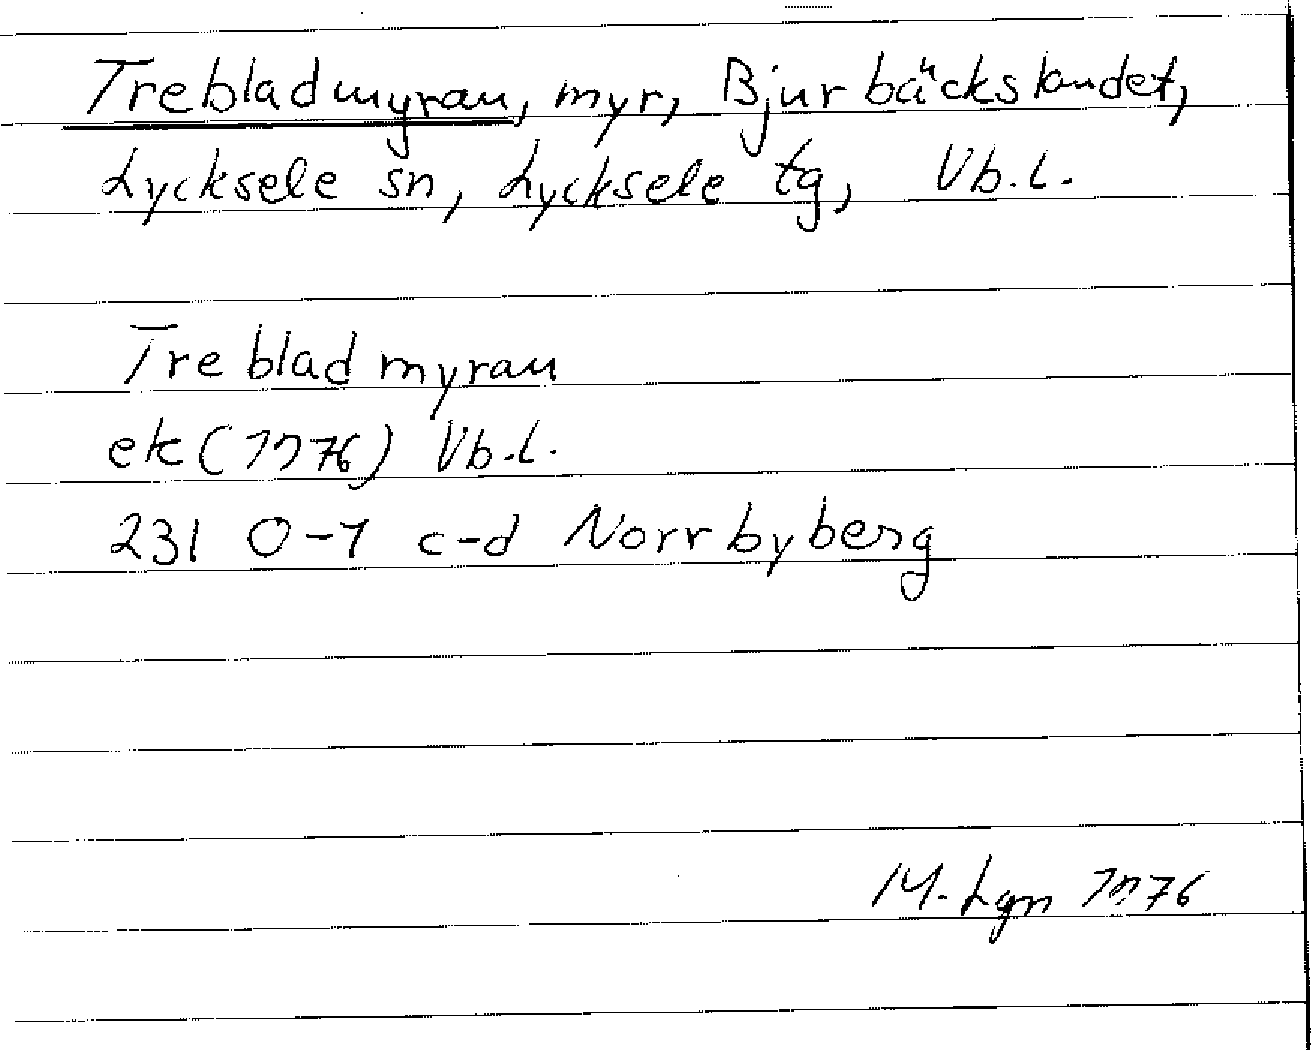 Trebladmyran, myr, Bjurbäckslandet,
Lycksele sn, Lycksele tg, Vb.l.
Trebladmyran
ek (1976) Vb.l.
231 0-1 c-d Norrbyberg
M. Lgn 1976